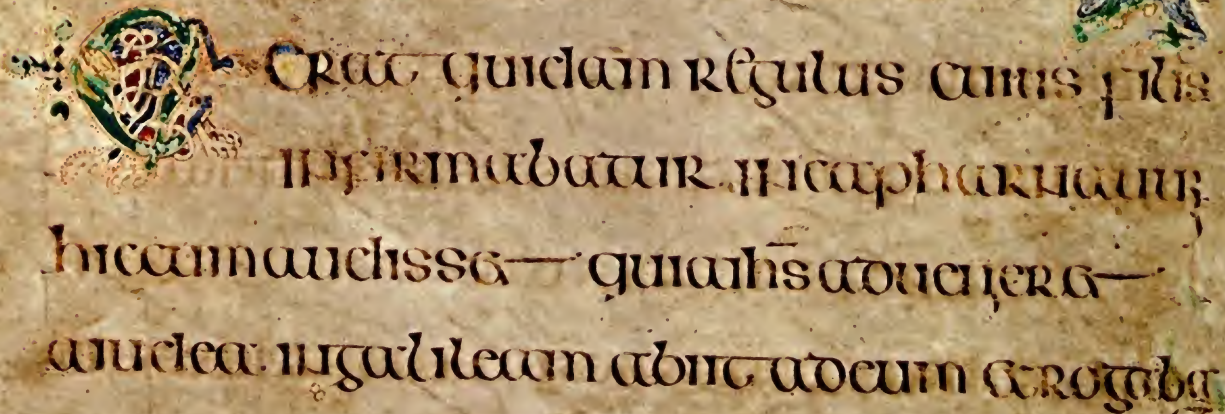 Erat quidam regulus cuius filis
infirmabatur in capharnaum
hic cum audisset quia ihs adueniret
a iudea in galileam abiit ad eum et rogaba